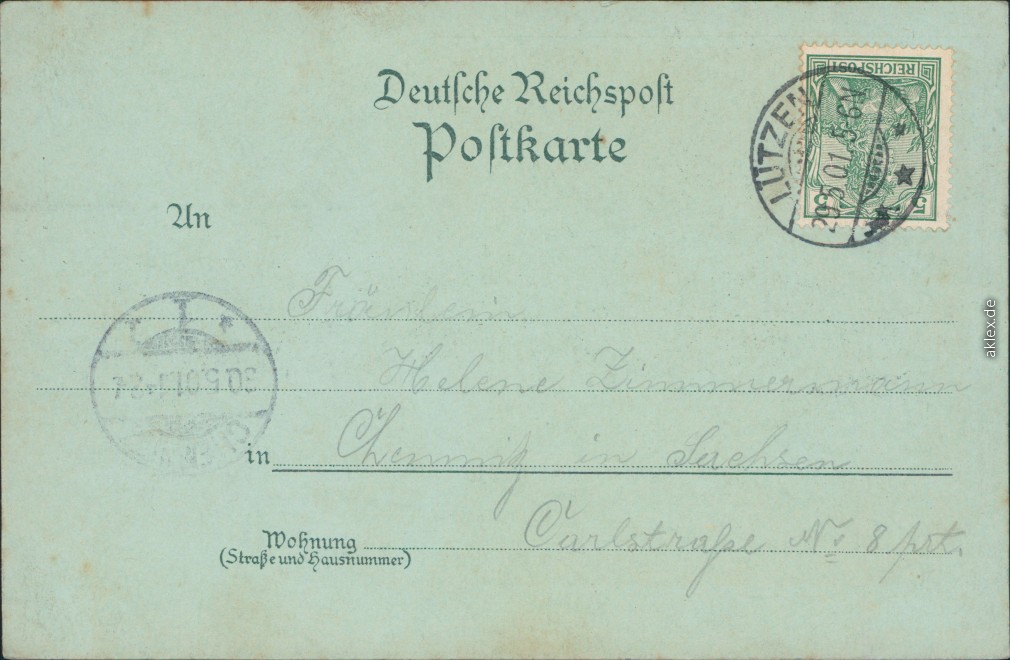 Deutsche Reichspost
Postkarte
REICHSPOST
5 5
LÜTZEN
29.5.01. 5-6N
An
Fräulein
Helene Zimmermann
in Chemnitz in Sachsen
30.5.01.
Wohnung Carlstraße No 8 prt.
(Straße und Hausnummer)
aklex.de